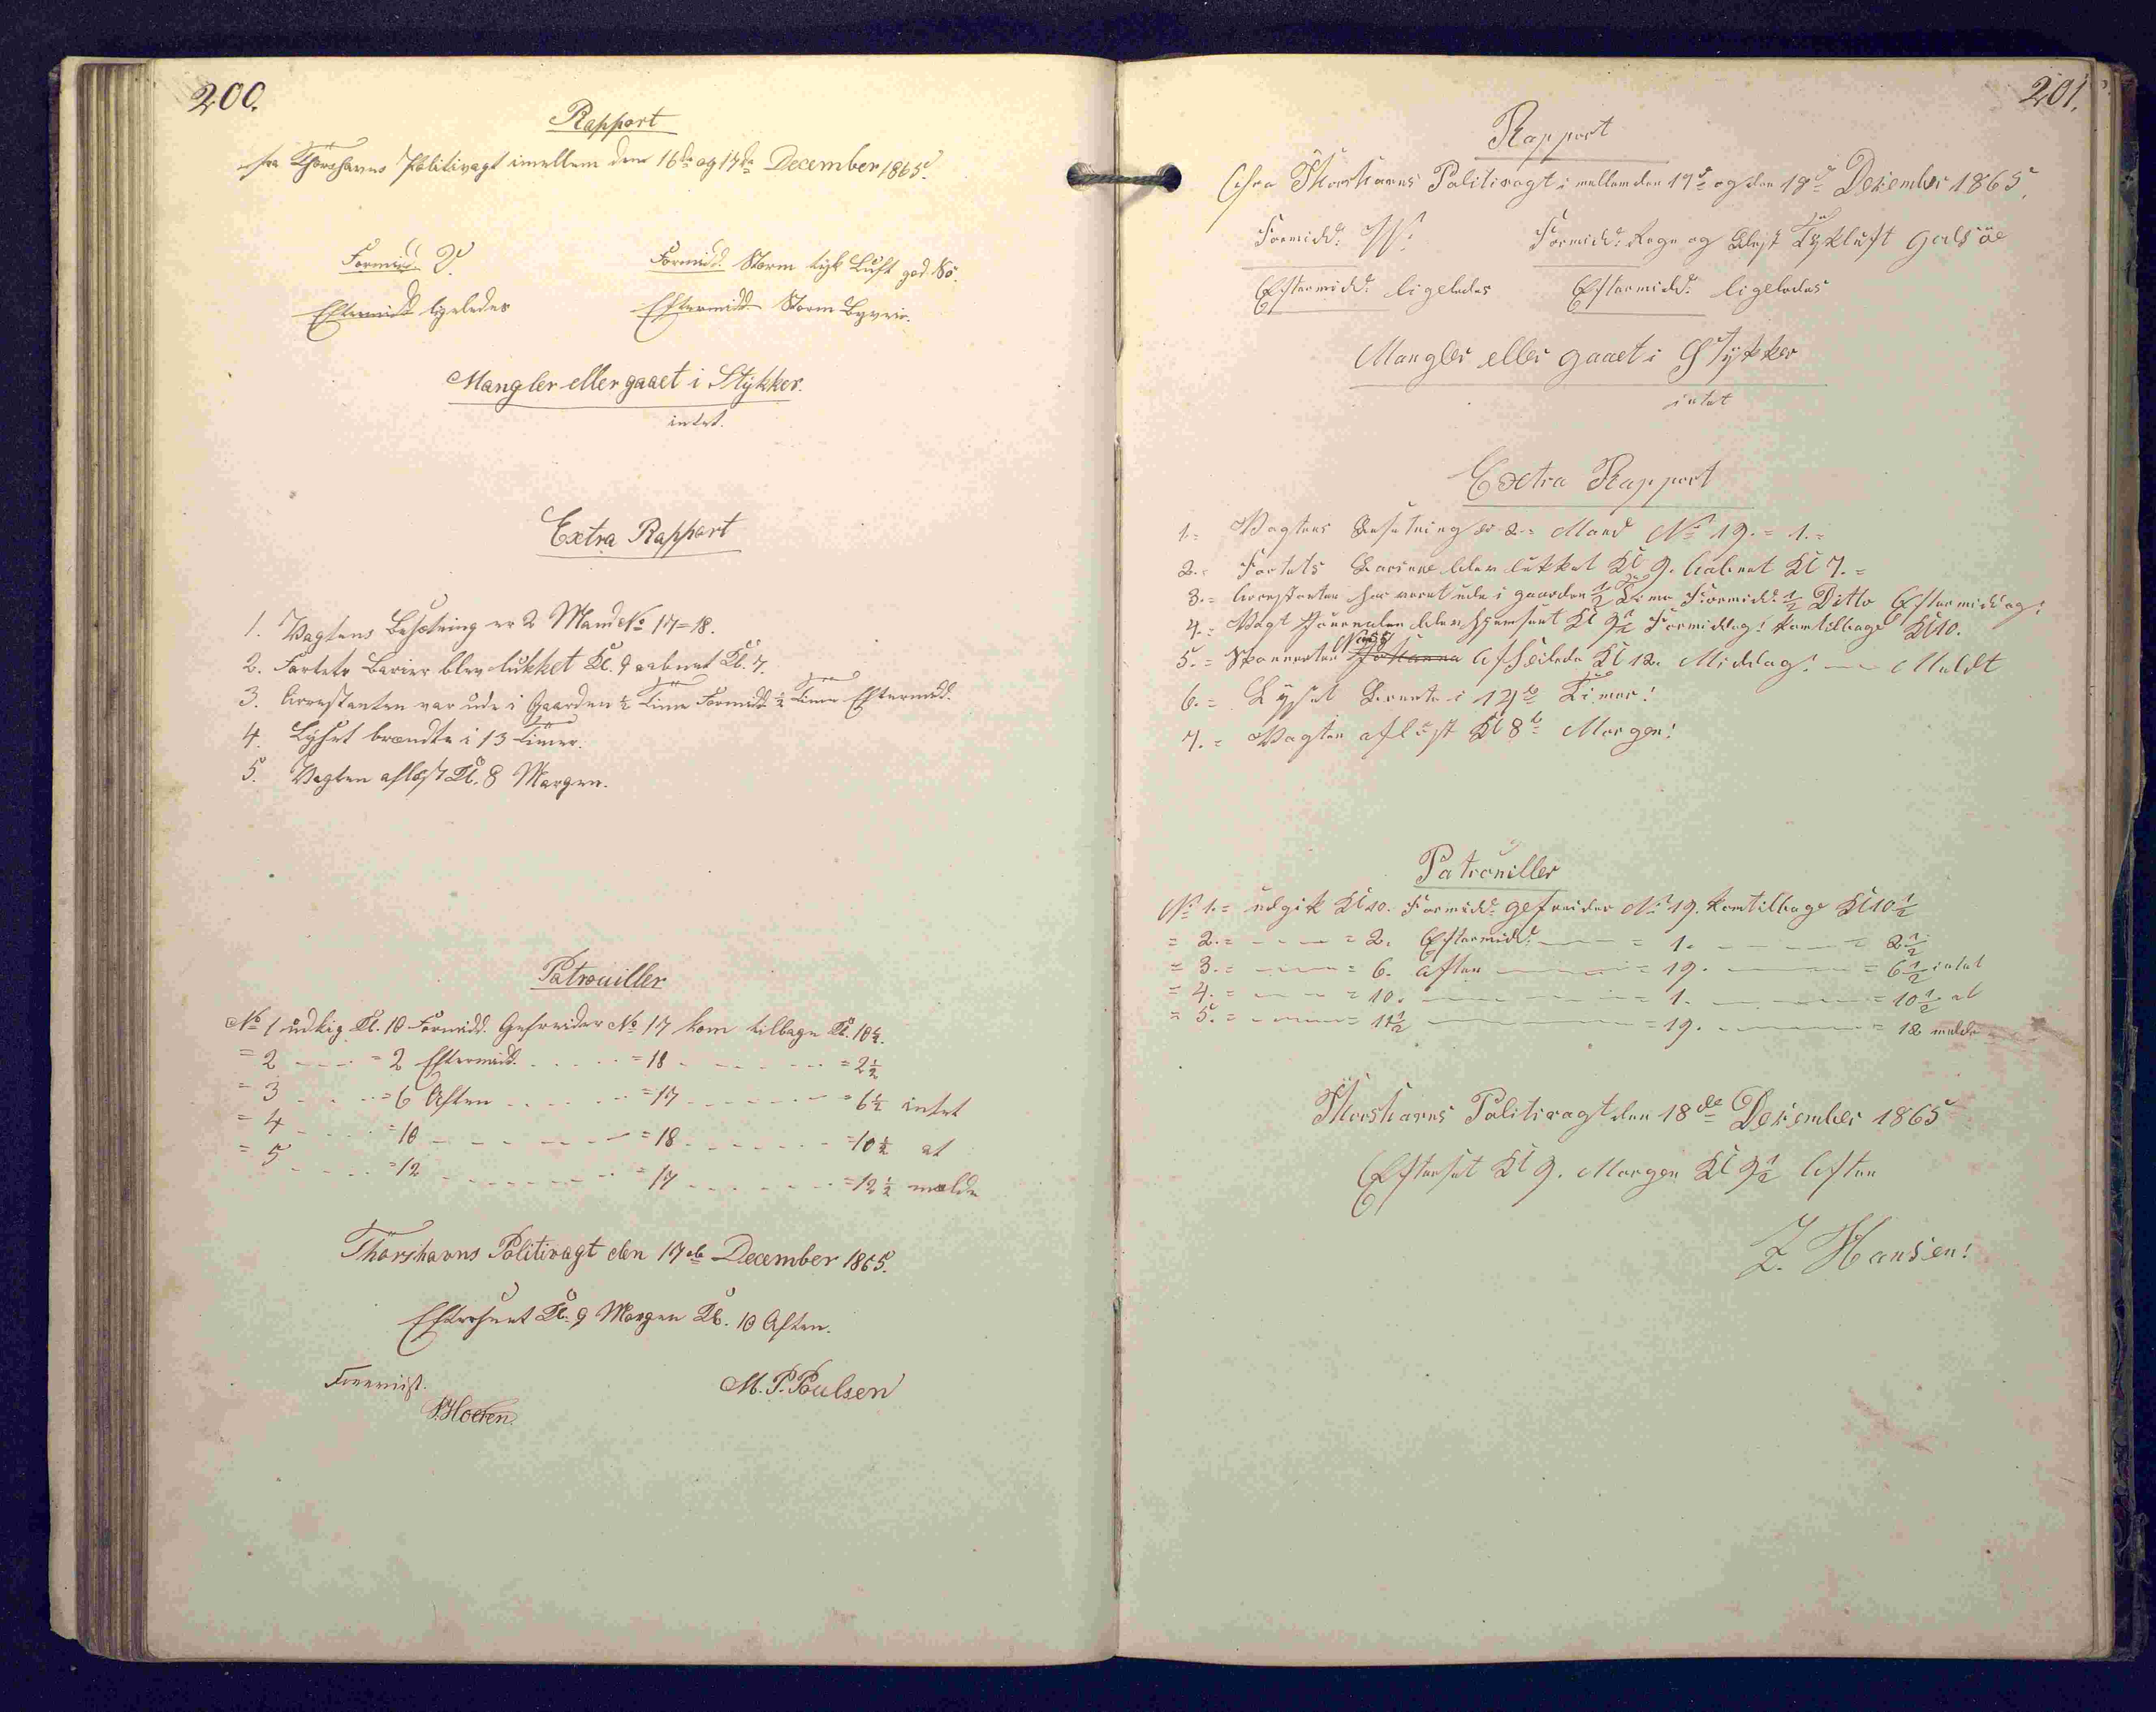 200.
Rapport
fra Thorshavns Politivagt imellem den 16de og 17de December 1865.
Formidd. V. Formidd. Storm tyk Luft god. Sö.
Eftermidd ligeledes Eftermidd. Storm Bygveir.
Mangler eller gaaet i Stÿkker.
intet.
Extra Rapport
1. Vagtens Besætning er 2 Mand No 17=18.
2. Fortets Barier blev lukket Kl. 9 aabnet Kl. 7.
3. Arrestanten var ude i Gaarden ½ Time Formidd. ½ Time Eftermidd.
4. Lÿset brændte i 13 Timer.
5. Vagten afløst Kl. 8 Morgen.
Patrouiller
No 1 udgig Kl. 10 Formidd. Gefreider No 17 kom tilbage Kl. 10½.
= 2 - - - = 2 Eftermidd. - - - = 18 - - - = 2½
= 3 - - - = 6 Aften - - - = 17 - - - = 6½ intet
= 4 - - - = 10 - - - = 18 - - - = 10½ at
= 5 - - - = 12 - - - = 17 - - - = 12½ melde
Thorshavns Politivagt den 17de December 1865.
Efterseet Kl. 9 Morgen Kl. 10 Aften.
Forevist. M. P. Poulsen
201.
Rapport
fra Thorshavns Politivagt imellem den 17de og den 18de December 1865.
Formidd: Formidd: Regn og Blæst Tÿkluft god Söe
Eftermidd: ligeledes Eftermidd: ligeledes
Mangler eller gaaet i Stÿkker
intet
Extra Rapport
1.= Vagtens Besetning er 2.= Mand No 19.= 1.=
2.= Fortets Bariere blev lukket Kl 9. Aabnet Kl 7.=
3.= Arrestanten har veret ude i gaarden ½ Time Formidd: ½ Ditto Eftermiddag:
4.= Vagt Journalen blev Kl 9½ Formiddag! kom tilbage Kl 10.
5.= Skonnerten Johanna Afseilede Kl 12. Middag! Meldt
6.= Lÿset Brente i 14de Timer!
7.= Vagten aflöst Kl 8te Morgen!
Patrouiller
No 1.= udgik Kl 10. Formidd: gefreider No 19. kom tilbage Kl 10½
= 2.= - - - = 2. Eftermidd: - - - = 1. - - - = 2½
= 3.= - - - = 6. Aften - - - = 19. - - - = 6½ intet
= 4.= - - - = 10. - - - = 1. - - - = 10½ at
= 5.= - - - = 11½ - - - = 19. - - - = 12 melde
Thorshavns Politivagt den 18de December 1865
Efterset Kl 9. Morgen Kl 9½ Aften
Z. Hansen!